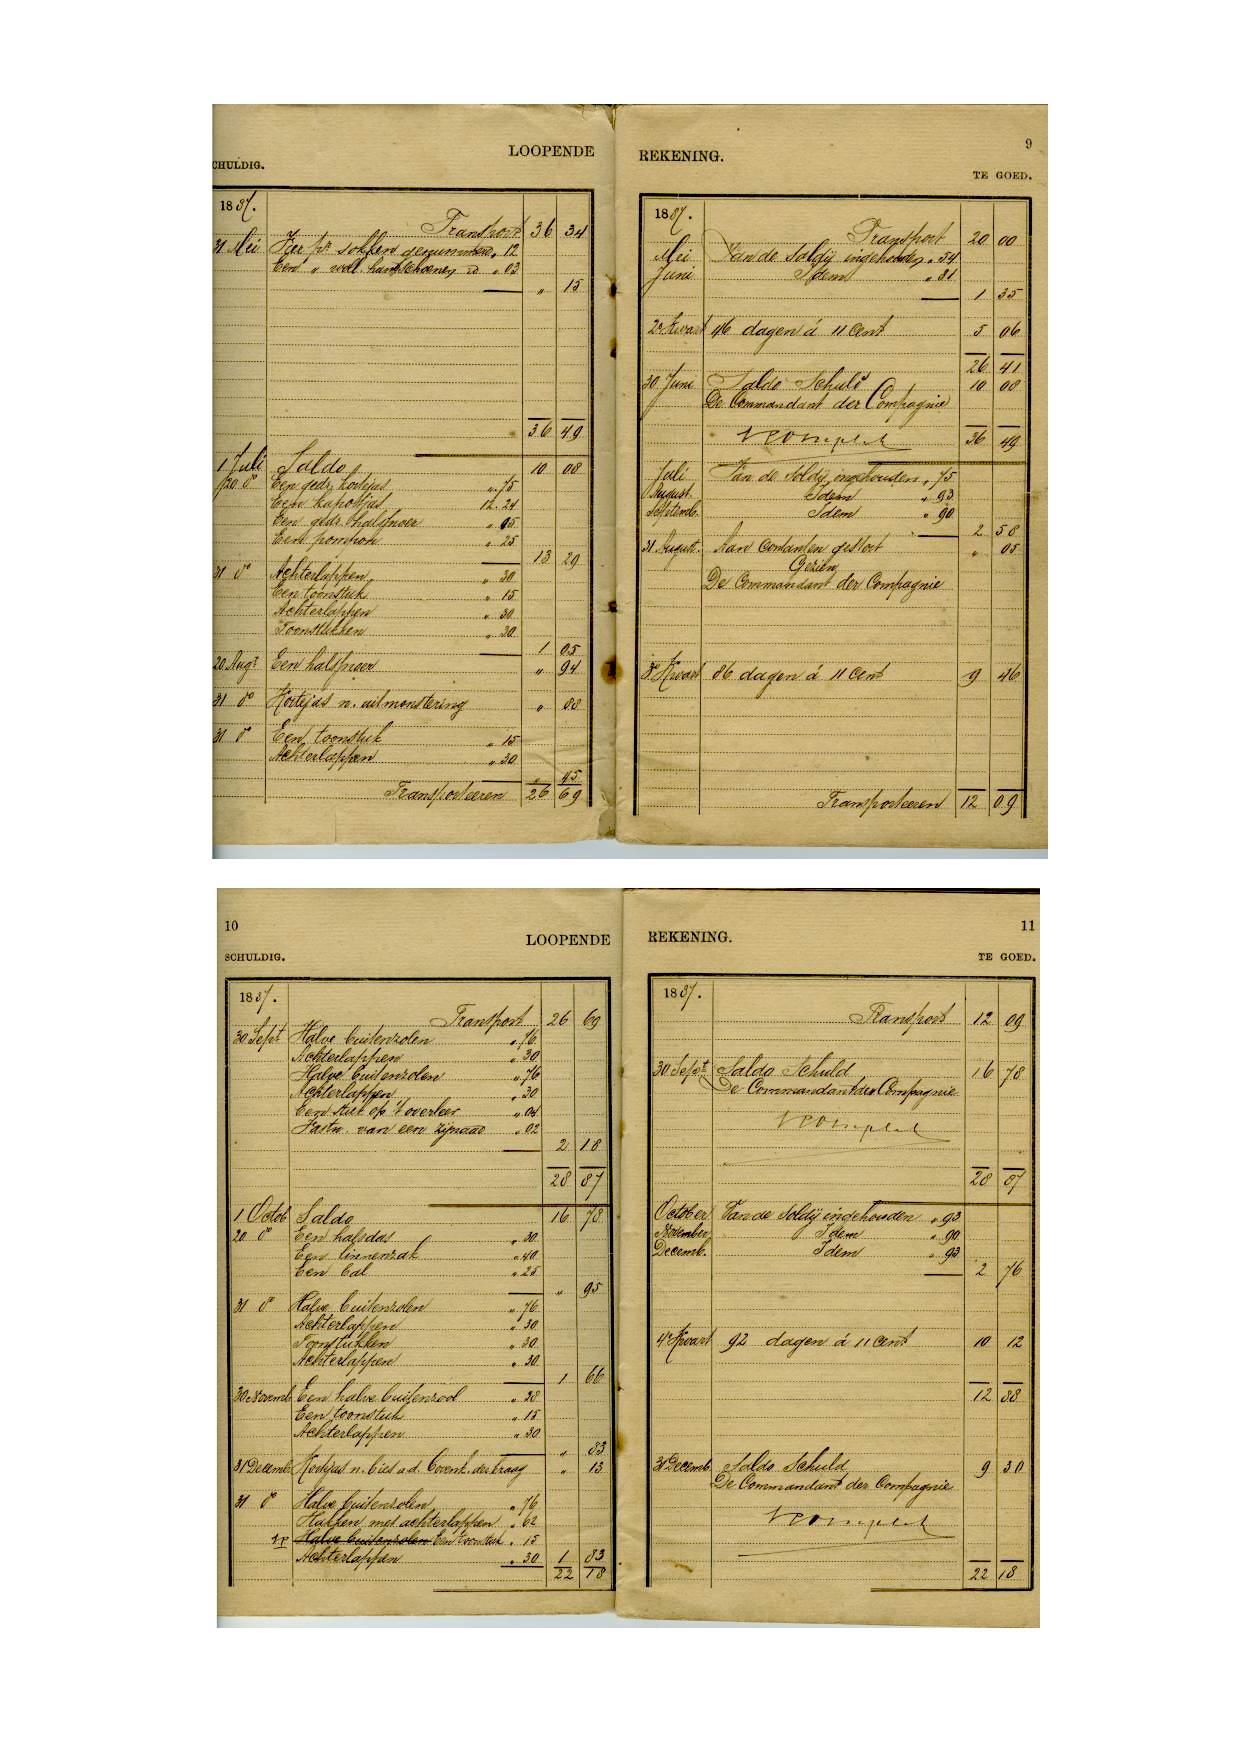 LOOPENDE
CHULDIG.
1887.
Transport 36 34
31 Mei Vier pr sokken genummerd „ 12
Een „ woll. handschoenen id „ 03
„ 15
36 49
1 Juli Saldo 10 08
/20 do Een gedr. kortejas „ 75
Een kapotjas 12.24
Een gedr. halfnoer „ 05
Een pompon „ 25
13 29
31 do Achterlappen „ 30
Een toonstuk „ 15
Achterlappen „ 30
Toonstukken „ 30
1 05
20 Augt Een halfnoer „ 94
31 do Kortejas n. uitmonstering „ 88
31 do Een toonstuk „ 15
Achterlappen „ 30
„ 45
Transporteeren 26 69
9
REKENING.
TE GOED.
1887.
Transport 20 00
Mei Van de soldij ingehouden „ 54
Juni Idem „ 81
1 35
2e Kwart 46 dagen á 11 cent 5 06
26 41
30 Juni Saldo Schuld 10 08
De Commandant der Compagnie
36 49
Juli Van de soldij ingehouden „ 75
August. Idem „ 93
Septemb. Idem „ 90
2 58
31 August. Aan contanten gestort „ 05
Gezien
De Commandant der Compagnie
3e Kwart 86 dagen á 11 cent 9 46
Transporteeren 12 09
10
LOOPENDE
SCHULDIG.
1887.
Transport 26 69
30 Sept Halve buitenzolen „ 76
Achterlappen „ 30
Halve buitenzolen „ 76
Achterlappen „ 30
Een stuk op 't overleer „ 04
Vastn. van een zijnaad „ 02
2 18
28 87
1 Octob Saldo 16 78
20 do Een halsdas „ 30
Een linnenzak „ 40
Een bal „ 25
„ 95
31 do Halve buitenzolen „ 76
Achterlappen „ 30
Toonstukken „ 30
Achterlappen „ 30
1 66
30 Novemb Een halve buitenzool „ 38
Een toonstuk „ 15
Achterlappen „ 30
„ 83
31 Decemb. Kortejas n. bies a.d. bovenk. der kraag „ 13
31 do Halve buitenzolen „ 76
Hakken met achterlappen „ 62
Halve buitenzolen Een toonstuk „ 15
Achterlappen „ 30 1 83
22 18
11
REKENING.
TE GOED.
1887.
Transport 12 09
30 Sept Saldo Schuld 16 78
De Commandant der Compagnie
28 87
October Van de soldij ingehouden „ 93
November Idem „ 90
Decemb. Idem „ 93
2 76
4e Kwart 92 dagen á 11 cent 10 12
12 88
31 Decemb. Saldo Schuld 9 30
De Commandant der Compagnie
22 18